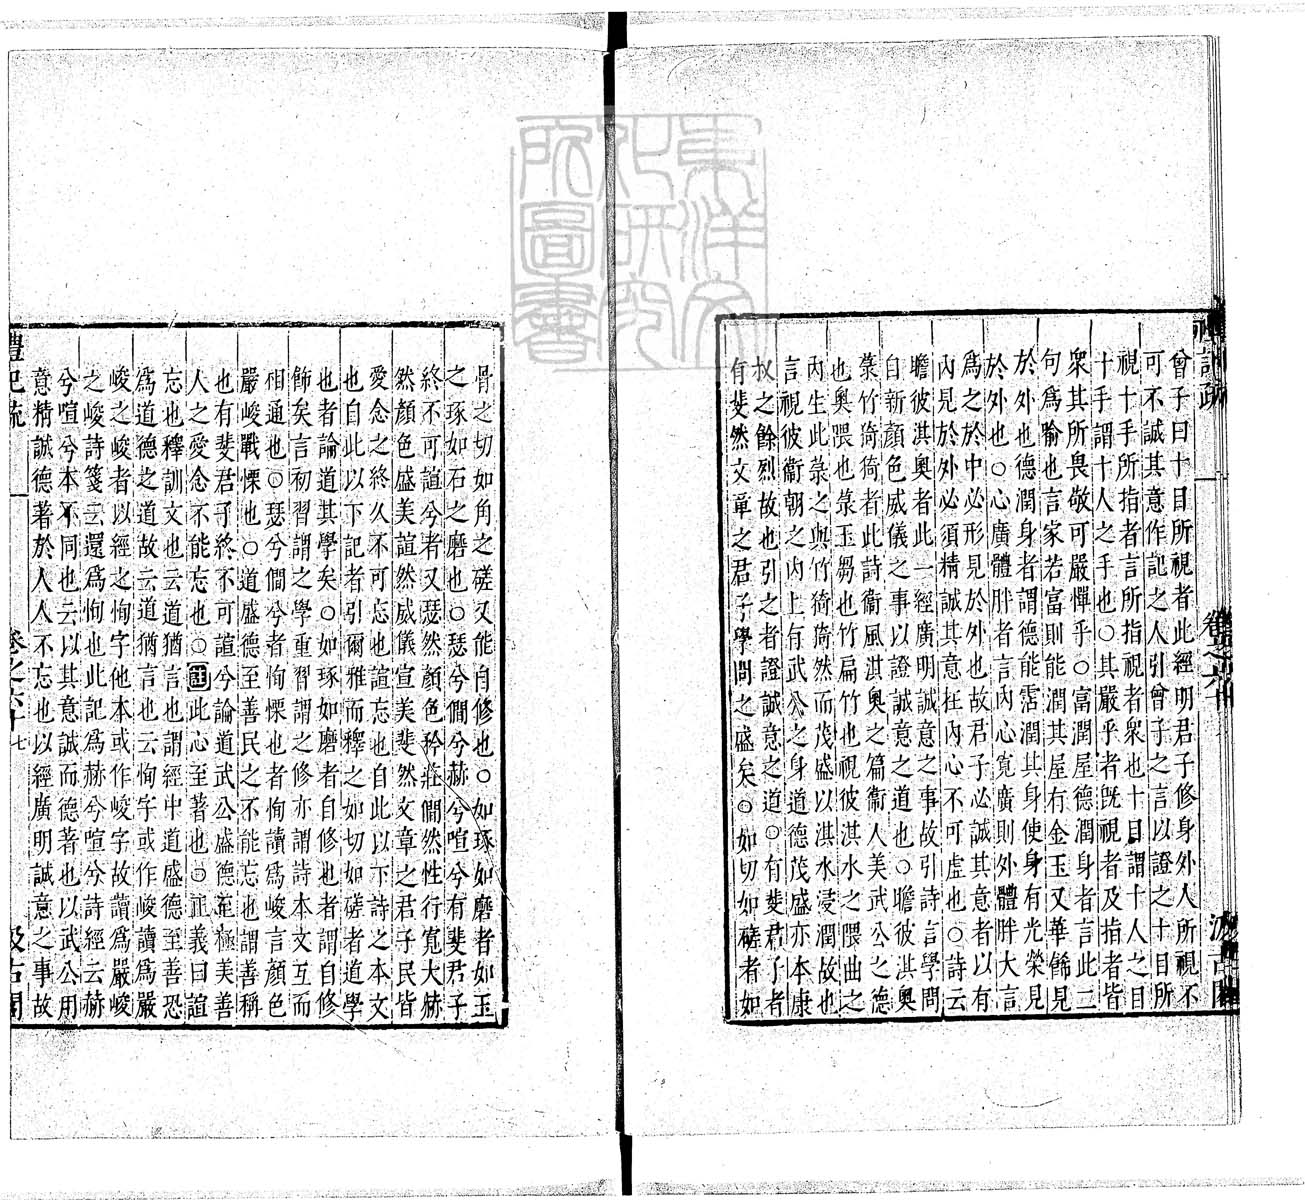 禮記疏
卷之六十
汲古閣
曾子曰十目所視者此經明君子修身外人所視不
可不誠其意作記之人引曾子之言以證之十目所
視十手所指者言所指視者衆也十目謂十人之目
十手謂十人之手也○其嚴乎者旣視者及指者皆
衆其所畏敬可嚴憚乎○富潤屋德潤身者言此二
句爲喻也言家若富則能潤其屋有金玉又華餙見
於外也德潤身者謂德能霑潤其身使身有光榮見
於外也○心廣體胖者言內心寬廣則外體胖大言
爲之於中必形見於外也故君子必誠其意者以有
內見於外必須精誠其意在內心不可虛也○詩云
瞻彼淇奧者此一經廣明誠意之事故引詩言學問
自新顏色威儀之事以證誠意之道也○瞻彼淇奧
菉竹猗猗者此詩衞風淇奧之篇衞人美武公之德
也奧隈也菉玉芻也竹扁竹也視彼淇水之隈曲之
內生此菉之與竹猗猗然而茂盛以淇水浸潤故也
言視彼衞朝之內上有武公之身道德茂盛亦本康
叔之餘烈故也引之者證誠意之道○有斐君子者
有斐然文章之君子學問之盛矣○如切如磋者如
骨之切如角之磋又能自修也○如琢如磨者如玉
之琢如石之磨也○瑟兮僩兮赫兮喧兮有斐君子
終不可諠兮者又瑟然顏色矜莊僩然性行寬大赫
然顏色盛美諠然威儀宣美斐然文章之君子民皆
愛念之終久不可忘也諠忘也自此以下詩之本文
也自此以下記者引爾雅而釋之如切如磋者道學
也者論道其學矣○如琢如磨者自修也者謂自修
飾矣言初習謂之學重習謂之修亦謂詩本文互而
相通也○瑟兮僩兮者恂慄也者恂讀爲峻言顏色
嚴峻戰慄也○道盛德至善民之不能忘也謂善稱
也有斐君子終不可諠兮論道武公盛德至極美善
人之愛念不能忘也○註此心至著也○正義曰諠
忘也釋訓文也云道猶言也謂經中道盛德至善恐
爲道德之道故云道猶言也云恂字或作峻讀爲嚴
峻之峻者以經之恂字他本或作峻字故讀爲嚴峻
之峻詩箋云還爲恂也此記爲赫兮喧兮詩經云赫
兮喧兮本不同也云以其意誠而德著也以武公用
意精誠德著於人人不忘也以經廣明誠意之事故
禮記疏
卷之六十
七
汲古閣